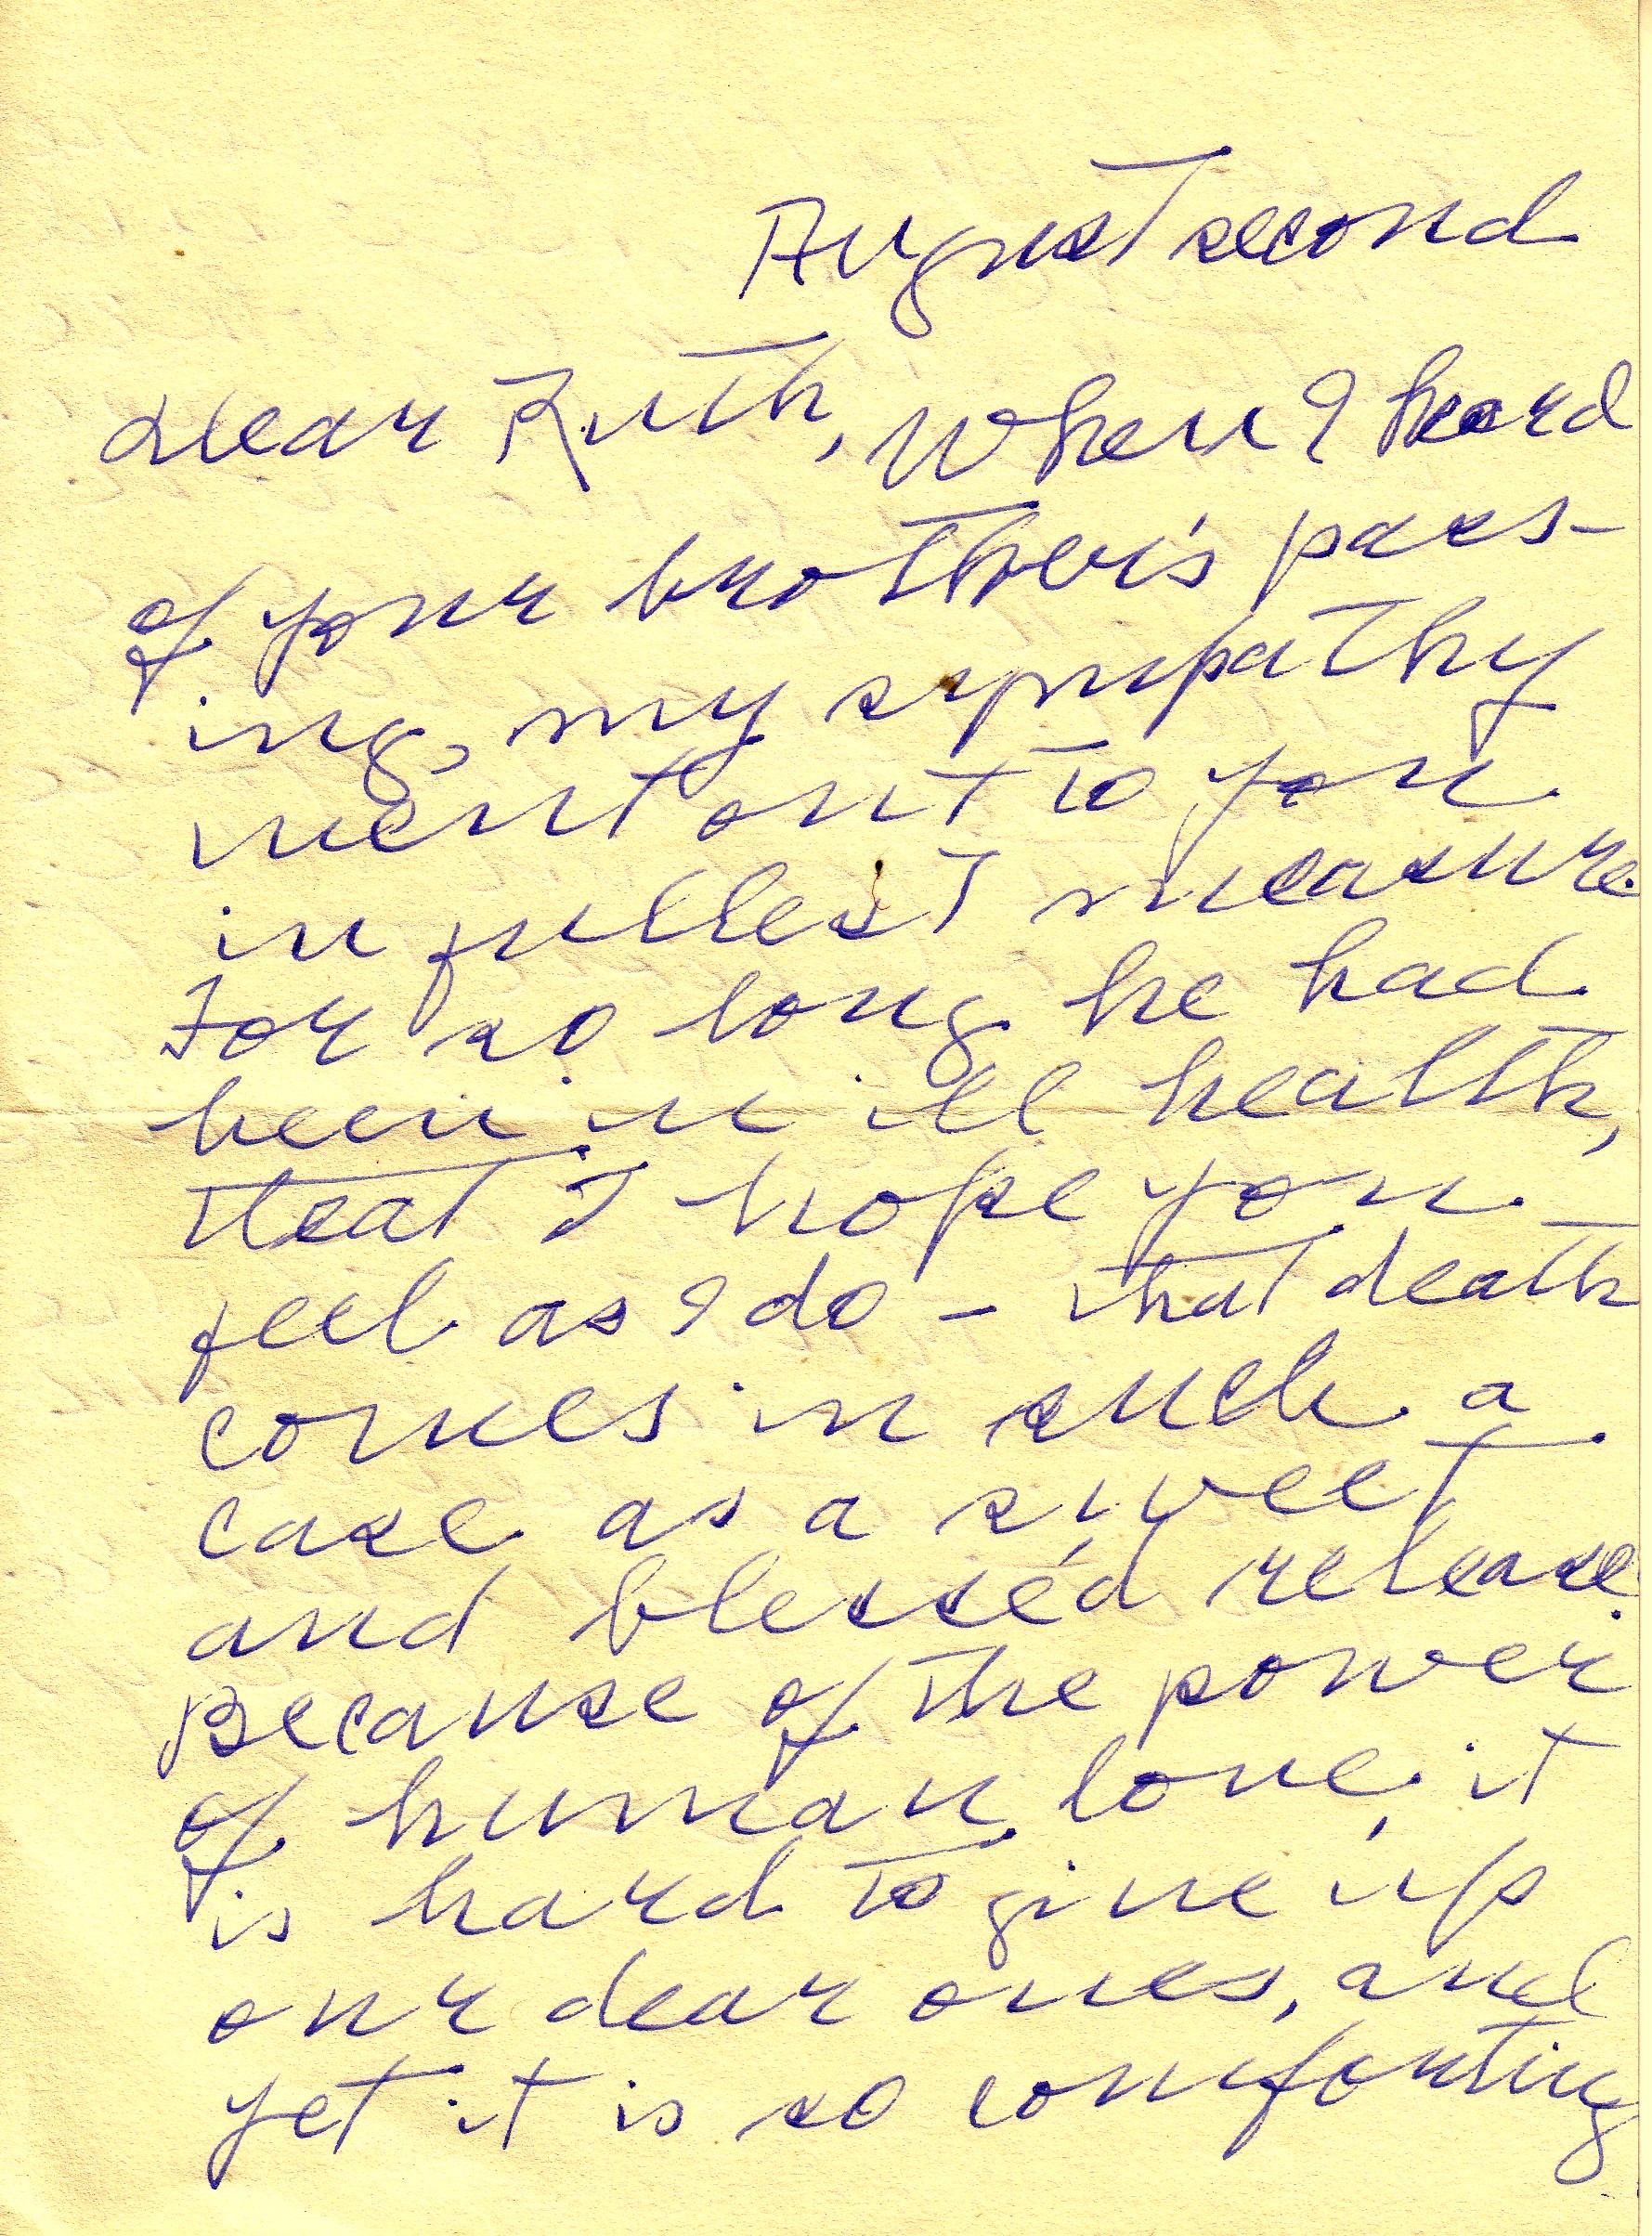 August second
Dear Ruth, When I heard
of your brother's pass-
ing, my sympathy
went out to you
in fullest measure.
For so long he had
been in ill health,
that I hope you
feel as I do – that death
comes in such a
case as a sweet
and blessed release.
Because of the power
of human love, it
is hard to give up
our dear ones, and
yet it is so comforting